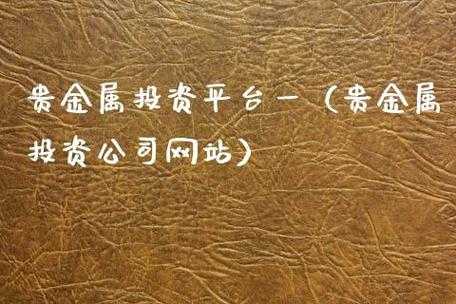 贵金属投资平台一（贵金属
投资公司网站）